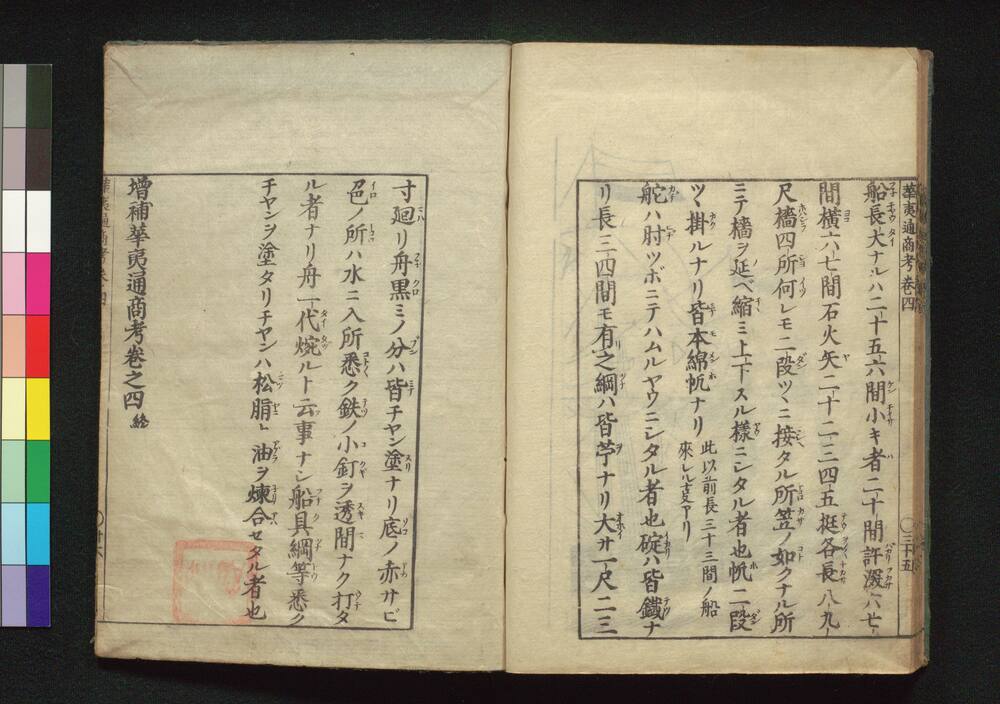 華夷通商考卷四
船長大ナルハ二十五六間小キ者二十間許濶六七
間横六七間石火矢二十二三四五挺各長八九
尺檣四所何レモ二段ツヽニ接タル所笠ノ如クナル所
ニテ檣ヲ延ベ縮ミ上下スル樣ニシタル者也帆二段
ツヽ掛ルナリ皆本綿帆ナリ
此以前長三十三間ノ船
來レル㕝アリ
舵ハ肘ツボニテハムルヤウニシタル者也碇ハ皆鐵ナ
リ長三四間モ有之綱ハ皆苧ナリ大サ一尺二三
三十五
寸廻リ舟黒ミノ分ハ皆チヤン塗ナリ底ノ赤サビ
色ノ所ハ水ニ入所悉ク鉄ノ小釘ヲ透間ナク打タ
ル者ナリ舟一代焼ルト云事ナシ船具綱等悉ク
チヤンヲ塗タリチヤンハ松脂ト油ヲ煉合セタル者也
增補華夷通商考卷之四 終